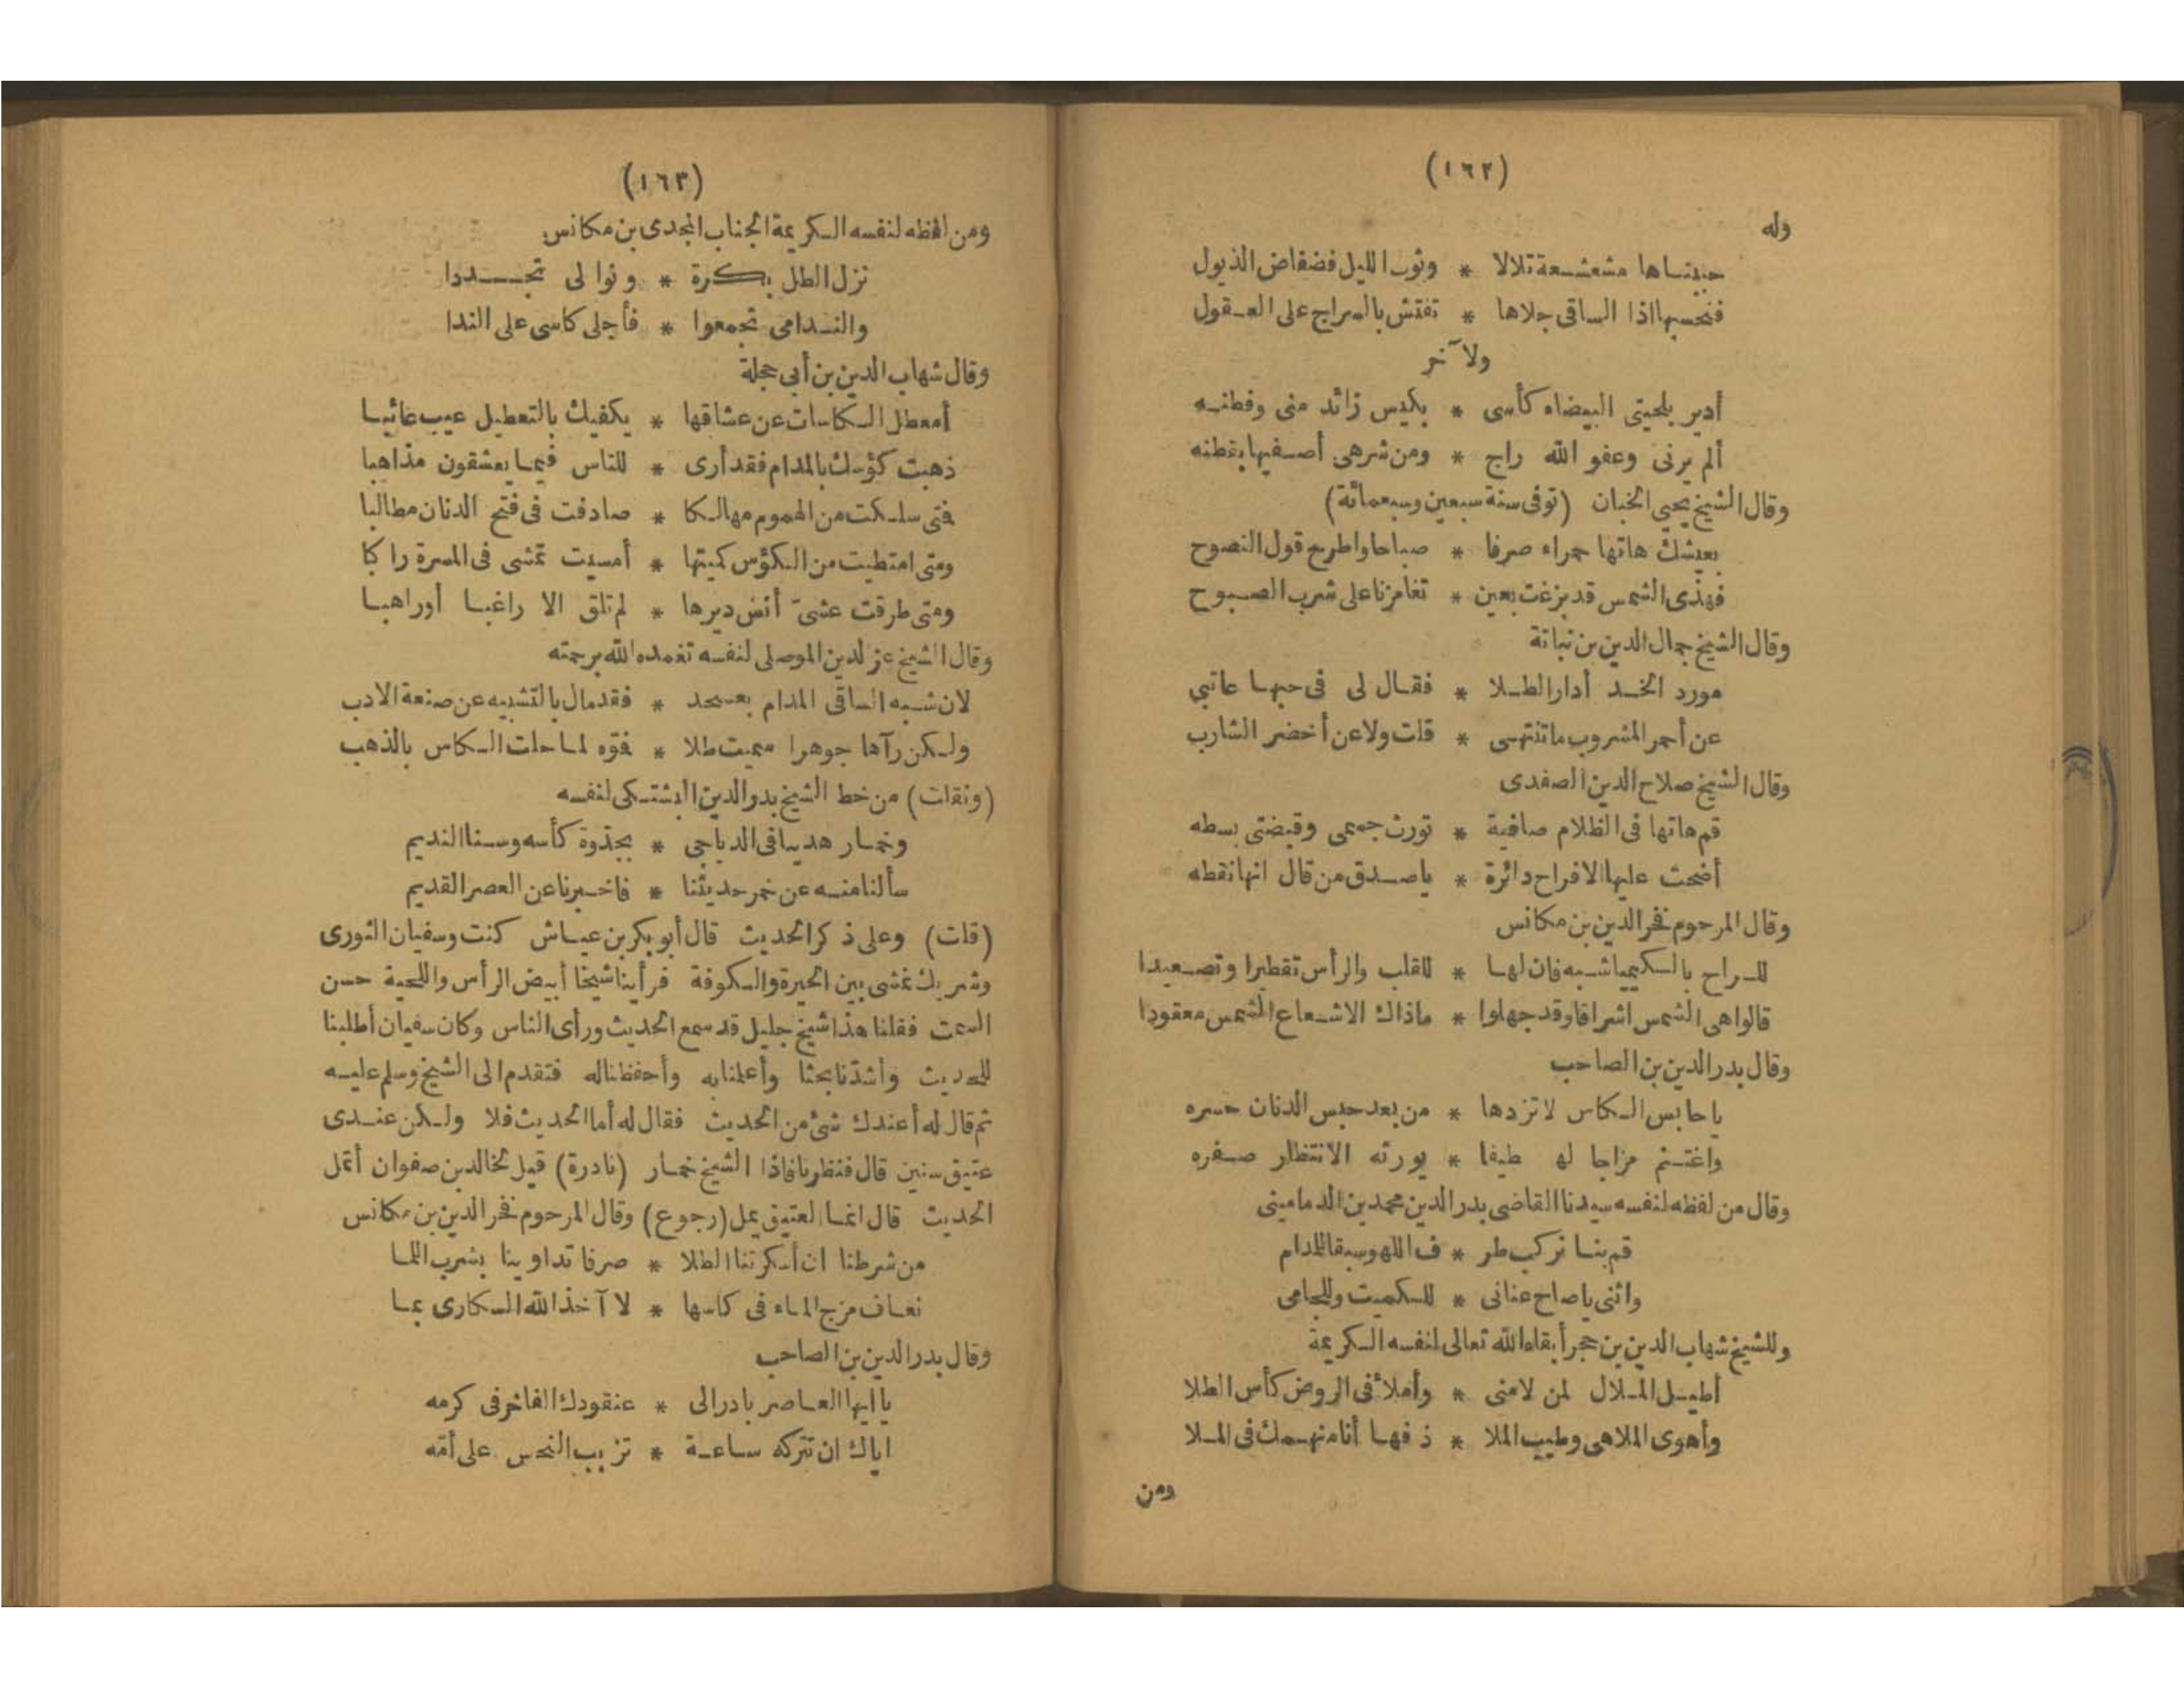 (١٦٢)
وله
حبيتاها مشعشعة تلالا * وثوب الليل فضفاض الذيول
فنحسبها اذا الساقى جلاها * تفتش بالسراج على العقول
ولآخر
أدير بلحيتى البيضاء كأسى * بكيس زائد منى وفطنه
ألم يرنى وعفو الله راج * ومن شرهى أصفيها بقطنه
وقال الشيخ يحيى الخبان (توفى سنة سبعين وسبعمائة)
بعيشك هاتها حمراء صرفا * صباحا واطرح قول النصوح
فهذى الشمس قد بزغت بعين * تغامزنا على شرب الصبوح
وقال الشيخ جمال الدين بن نباتة
مورد الخد أدار الطلا * فقال لى فى حبها عاتبى
عن أحمر المشروب ما تنتهى * قلت ولا عن أخضر الشارب
وقال الشيخ صلاح الدين الصفدى
قم هاتها فى الظلام صافية * تورث جمعى وقبضتى بسطه
أضحت عليها الافراح دائرة * ياصدق من قال انها نقطه
وقال المرحوم فخر الدين بن مكانس
للراح بالكيميا شبه فان لها * للقلب والرأس تقطيرا وتصعيدا
قالوا هى الشمس اشراقا وقد جهلوا * ماذاك الا شعاع الشمس معقودا
وقال بدر الدين بن الصاحب
يا حابس الكاس لا تزدها * من بعد حبس الدنان حسره
واغتنم مزاجا لها طيفا * يورثه الانتظار صفره
وقال من لفظه لنفسه سيدنا القاضى بدر الدين محمد بن الدمامينى
قم بنا نركب طر * ف اللهو سبقا للمدام
واثنى ياصاح عنانى * للكميت ولجامى
وللشيخ شهاب الدين بن حجر أبقاه الله تعالى لنفسه الكريمة
أطيل الملال لمن لامنى * وأملأ فى الروض كأس الطلا
وأهوى الملاهى وطيب الملا * ذ فها أنا منهمك فى الملا
ومن
(١٦٣)
ومن لفظه لنفسه الكريمة الجناب المجدى بن مكانس
نزل الطل بكرة * وتوالى تجددا
والندامى تجمعوا * فأجلى كاسى على الندا
وقال شهاب الدين بن أبى حجلة
أمعطل الكاسات عن عشاقها * يكفيك بالتعطيل عيب غائبا
ذهبت كؤسك بالمدام فقد أرى * للناس فيما يعشقون مذاهبا
فتى سلكت من الهموم مهالكا * صادفت فى فتح الدنان مطالبا
ومتى امتطيت من الكؤس كميتها * أمسيت تمشى فى المسرة راكبا
ومتى طرقت عشىّ أنس ديرها * لم تلق الا راغبا أوراهبا
وقال الشيخ عز لدين الموصلى لنفسه تغمده الله برحمته
لان شبه الساقى المدام بعسجد * فقد مال بالتشبيه عن صنعة الادب
ولكن رآها جوهرا سميت طلا * فقوه لما حلت الكاس بالذهب
(ونقلت) من خط الشيخ بدر الدين البشتكى لنفسه
وخمار هدينا فى الدياجى * بجذوة كأسه وسنا النديم
سألنا منه عن خمر حديثنا * فاخبرنا عن العصر القديم
(قلت) وعلى ذكر الحديث قال أبو بكر بن عياش كنت وسفيان الثورى
وشريك نمشى بين الحيرة والكوفة فرأينا شيخا أبيض الرأس واللحية حسن
السمت فقلنا هذا شيخ جليل قد سمع الحديث ورأى الناس وكان سفيان أطلبنا
للحديث وأشدنا بحثا وأعلمنا به وأحفظنا له فتقدم الى الشيخ وسلم عليه
ثم قال له أعندك شئ من الحديث فقال له أما الحديث فلا ولكن عندى
عتيق سنين قال فنظرنا فاذا الشيخ خمار (نادرة) قيل لخالد بن صفوان أتمل
الحديث قال انما العتيق يمل (رجوع) وقال المرحوم فخر الدين بن مكانس
من شرطنا ان أسكرتنا الطلا * صرفا تداوينا بشرب اللما
نعاف مزج الماء فى كاسها * لا آخذ الله السكارى بما
وقال بدر الدين بن الصاحب
يا أيها العاصر بادر الى * عنقودك الفاخر فى كرمه
اياك ان تتركه ساعة * تزبب النحس على أمّه